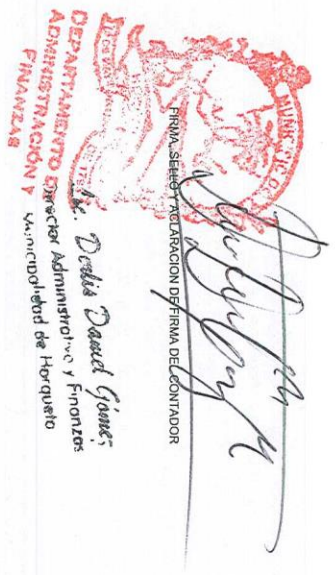 FIRMA, SELLO Y ACLARACION DE FIRMA DEL CONTADOR
Lic. Derlis David Gómez
Director Administrativo y Finanzas
Municipalidad de Horqueta
MUNICIPAL
DEPARTAMENTO DE
ADMINISTRACIÓN Y
FINANZAS